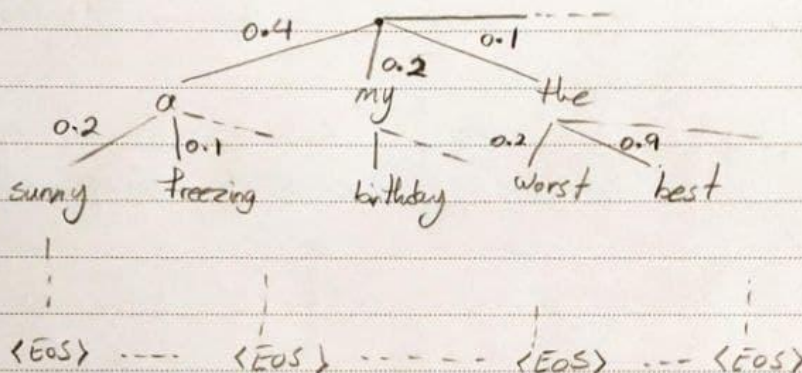 0.4 0.1
0.2
a my the
0.2 0.1 0.2 0.9
sunny freezing birthday worst best
<EOS> <EOS> <EOS> <EOS>